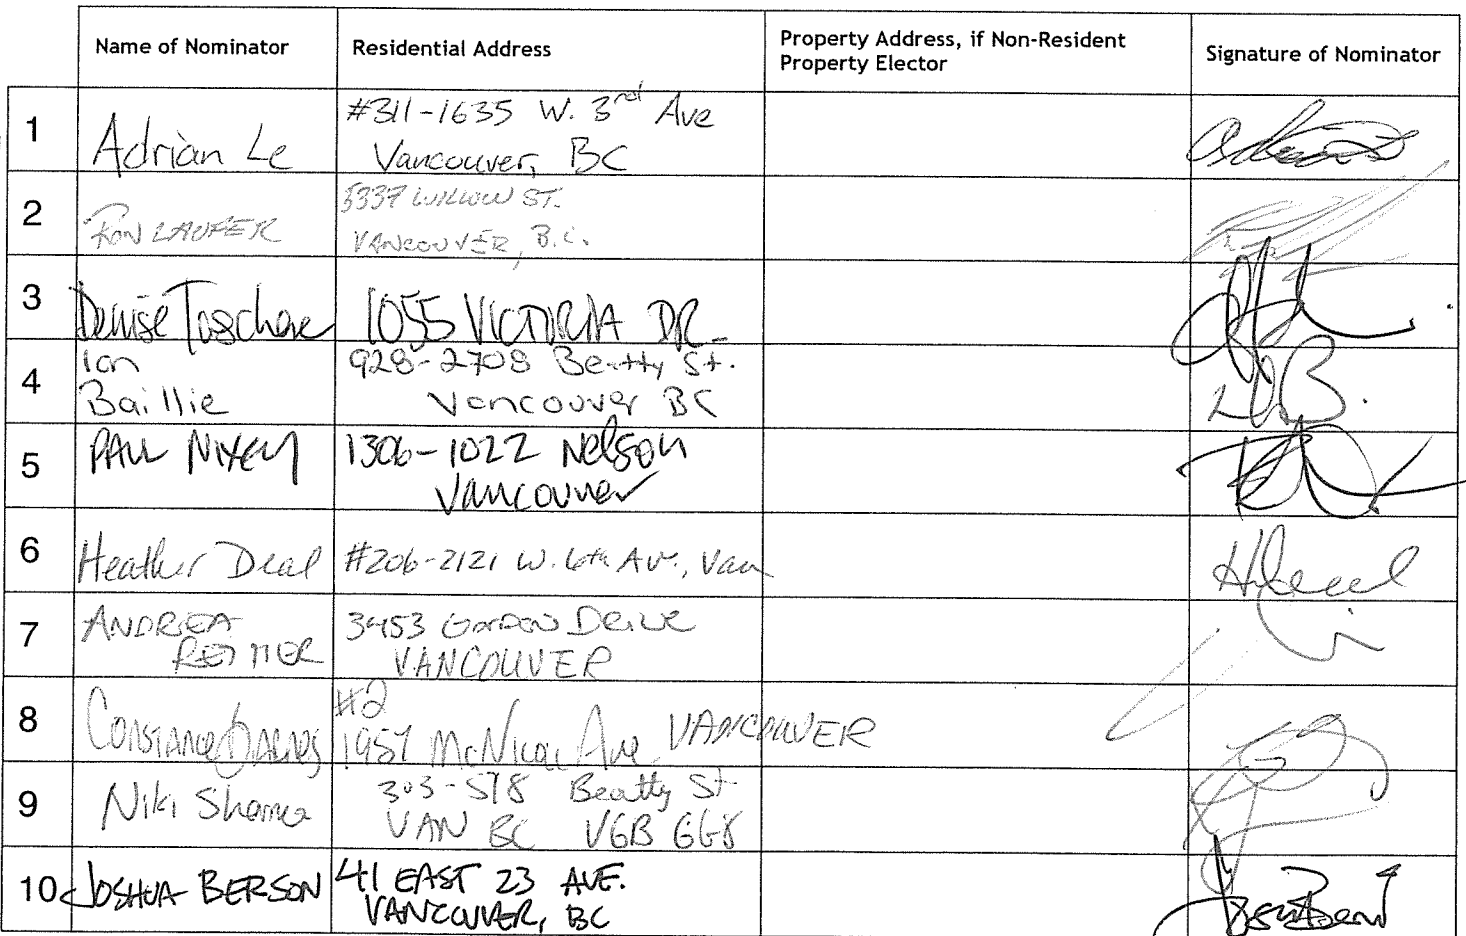 Name of Nominator Residential Address Property Address, if Non-Resident Property Elector Signature of Nominator
1 Adrian Le #311-1635 W. 3rd Ave
Vancouver, BC
2 RON LAUFER 5337 WILLOW ST.
VANCOUVER, B.C.
3 Denise 1055 VICTORIA DR.
4 Ian Baillie 928-2708 Beatty St.
Vancouver BC
5 PAUL NIXEY 1306-1022 Nelson
Vancouver
6 Heather Deal #206-2121 W. 6th Av., Van
7 ANDREA REIMER 3453 GORDON DRIVE
VANCOUVER
8 CONSTANCE BARNES #2
1957 McNicol Ave VANCOUVER
9 Niki Sharma 303-578 Beatty St
VAN BC V6B
10 JOSHUA BERSON 41 EAST 23 AVE.
VANCOUVER, BC